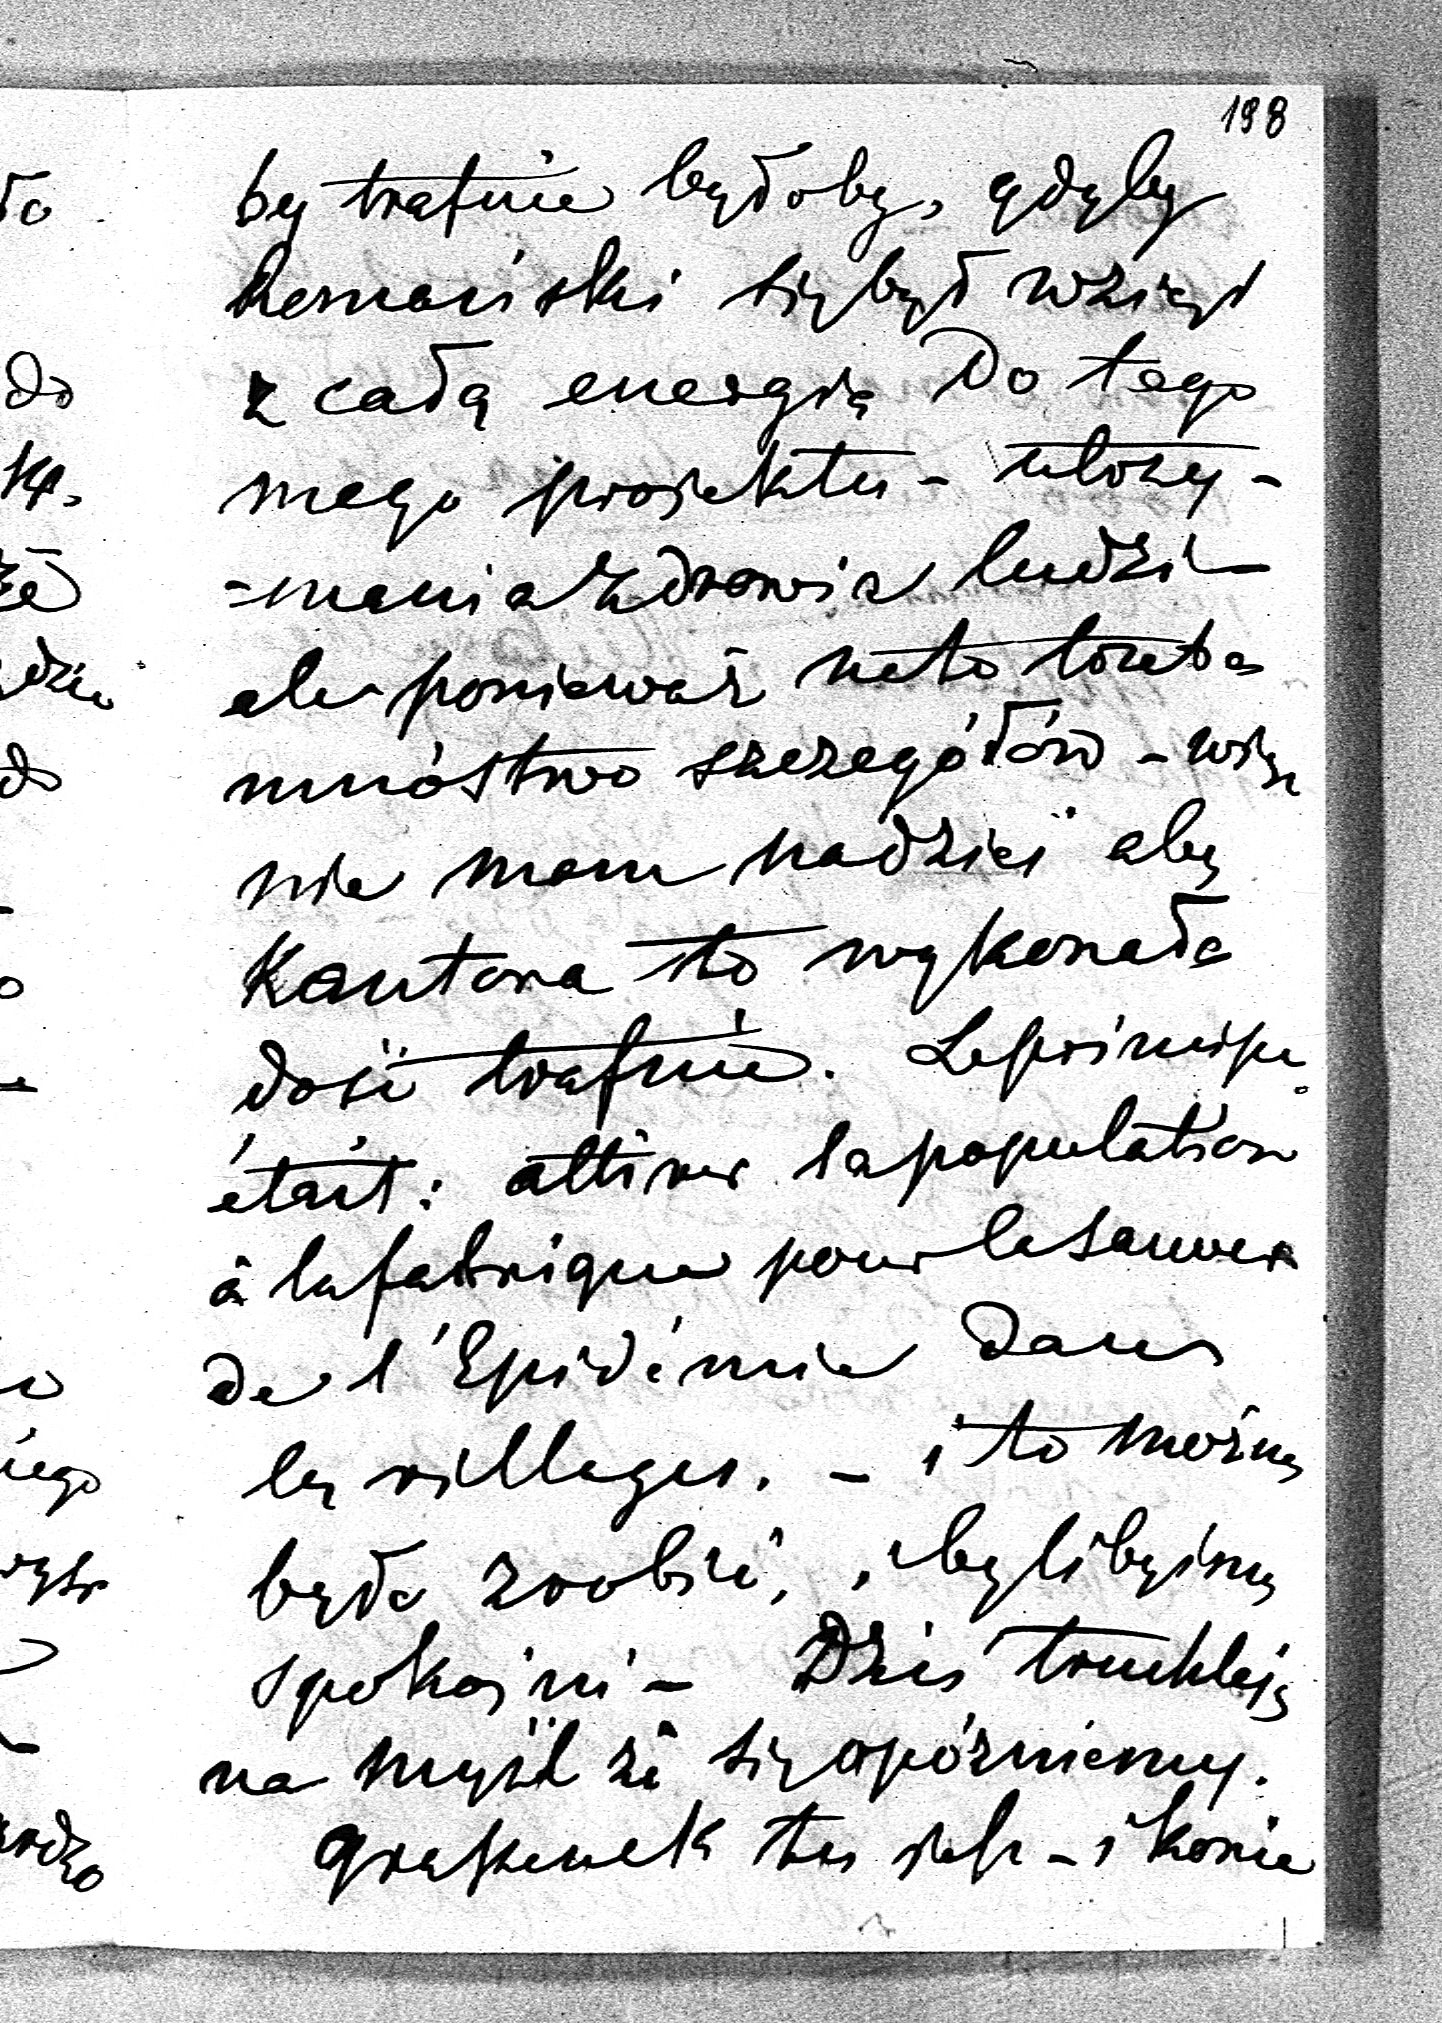 198
by trafnie byłoby, gdyby
Romański się był wziął
z całą energią Do tego
mego projektu - utrzy-
=mania zdrowia ludzi -
ale ponieważ na to trzeba
mnóstwo szczegółów - więc
nie mam nadziei aby
Kantora to wykonała
dość trafnie. Le principe
était: attirer la population
à la fabrique pour la sauver
de l'Epidémie Dans
les villages. - i to można
było zrobić, i bylibyśmy
spokojni - Dziś truchleją
na myśl że się opóźniemy.
tu jest - i konie